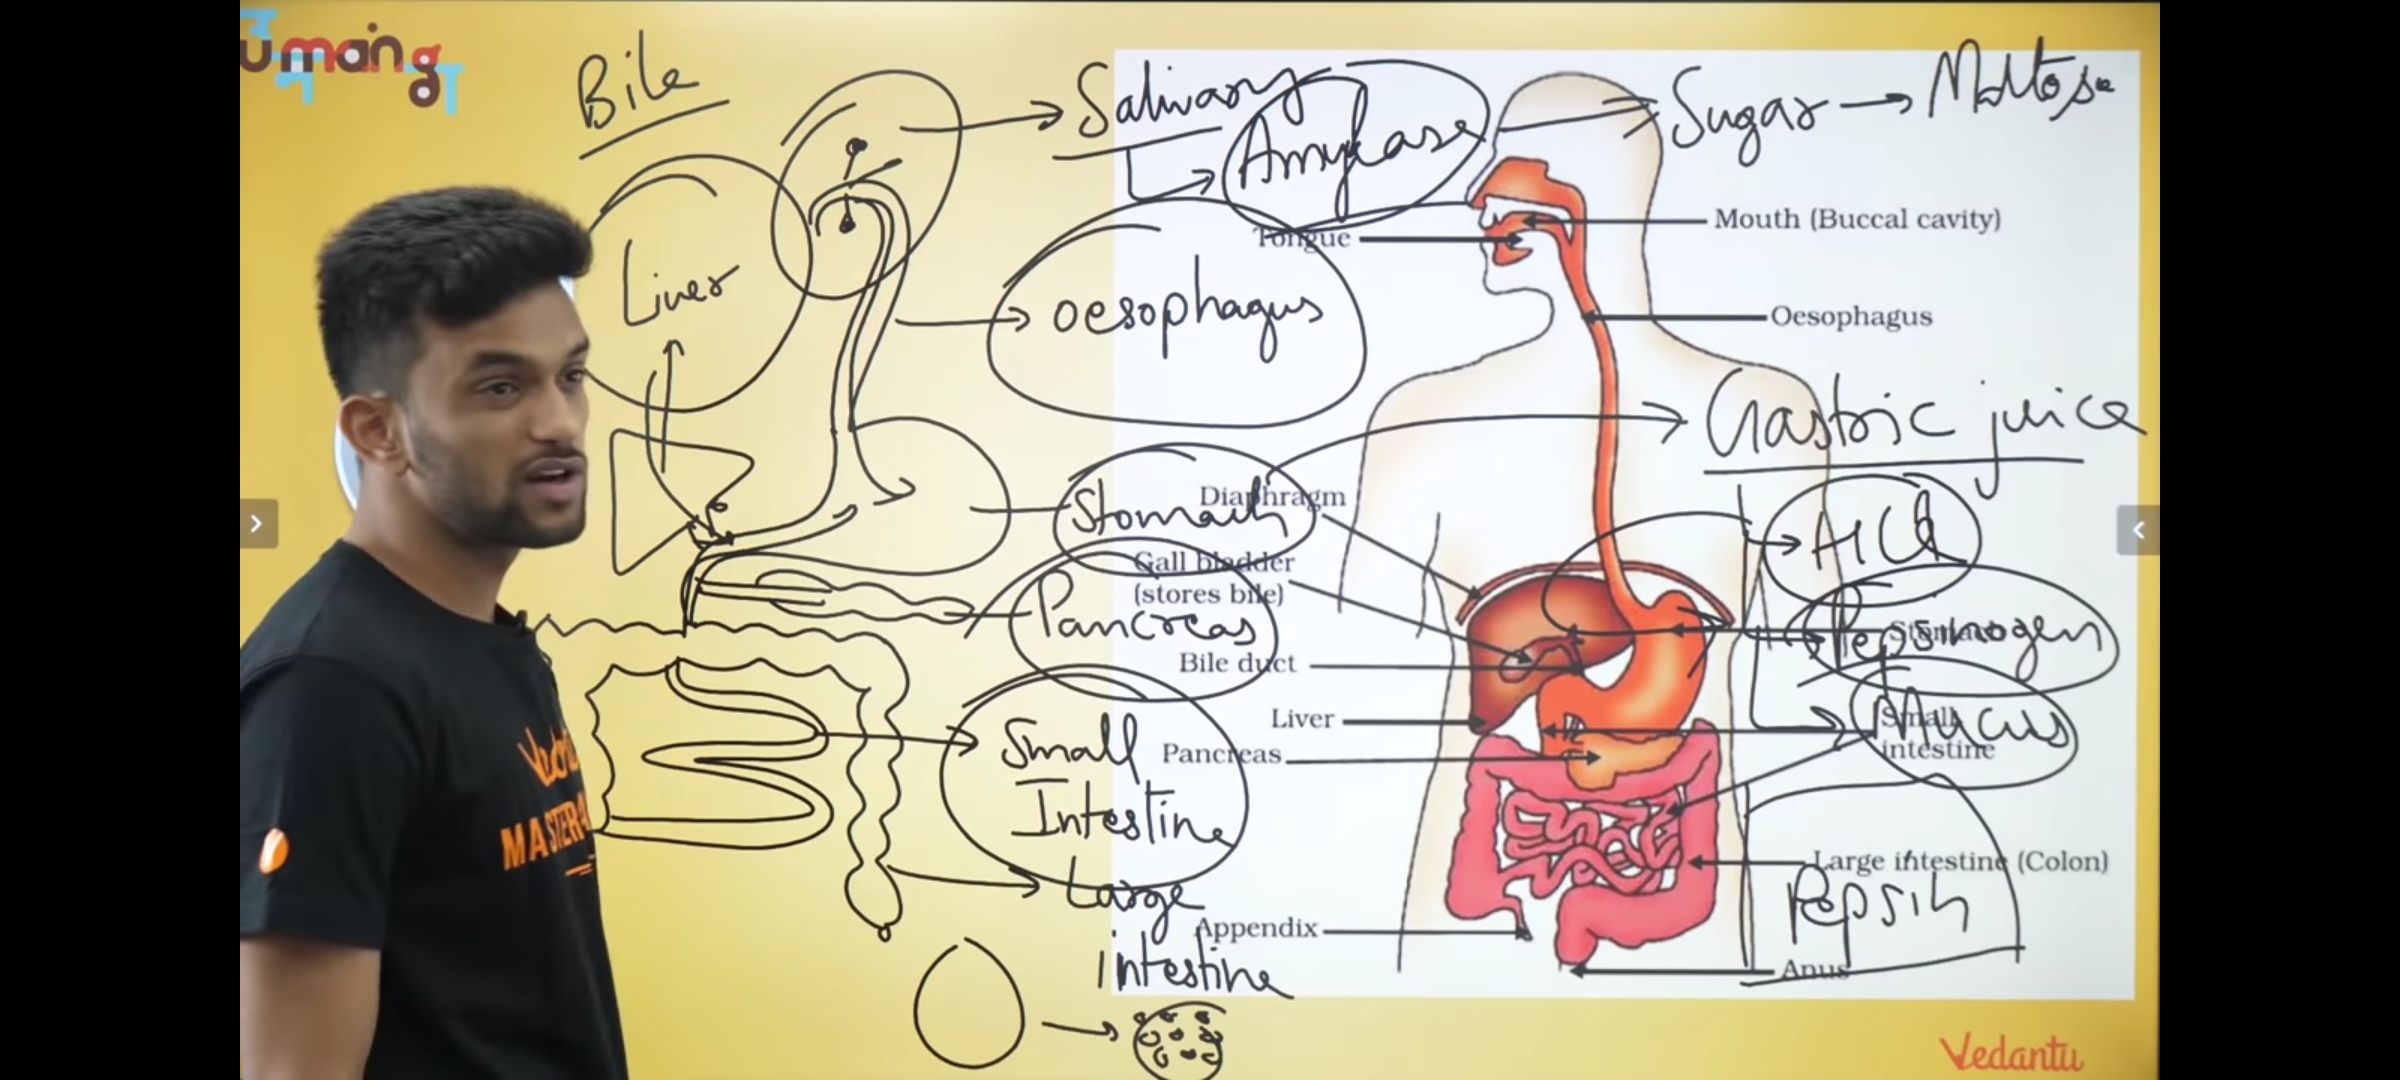 umang
Bile
Salivary
Amylase
Sugar → Maltose
Mouth (Buccal cavity)
Tongue
Liver
oesophagus
Oesophagus
Gastric juice
Diaphragm
Stomach
HCl
Gall bladder
(stores bile)
Pancreas
Pepsinogen
Stomach
Bile duct
Liver
Mucus
Small
intestine
Pancreas
Small
Intestine
Large intestine (Colon)
Large
Intestine
Pepsin
Appendix
Anus
Vedantu
MASTER
Vedantu